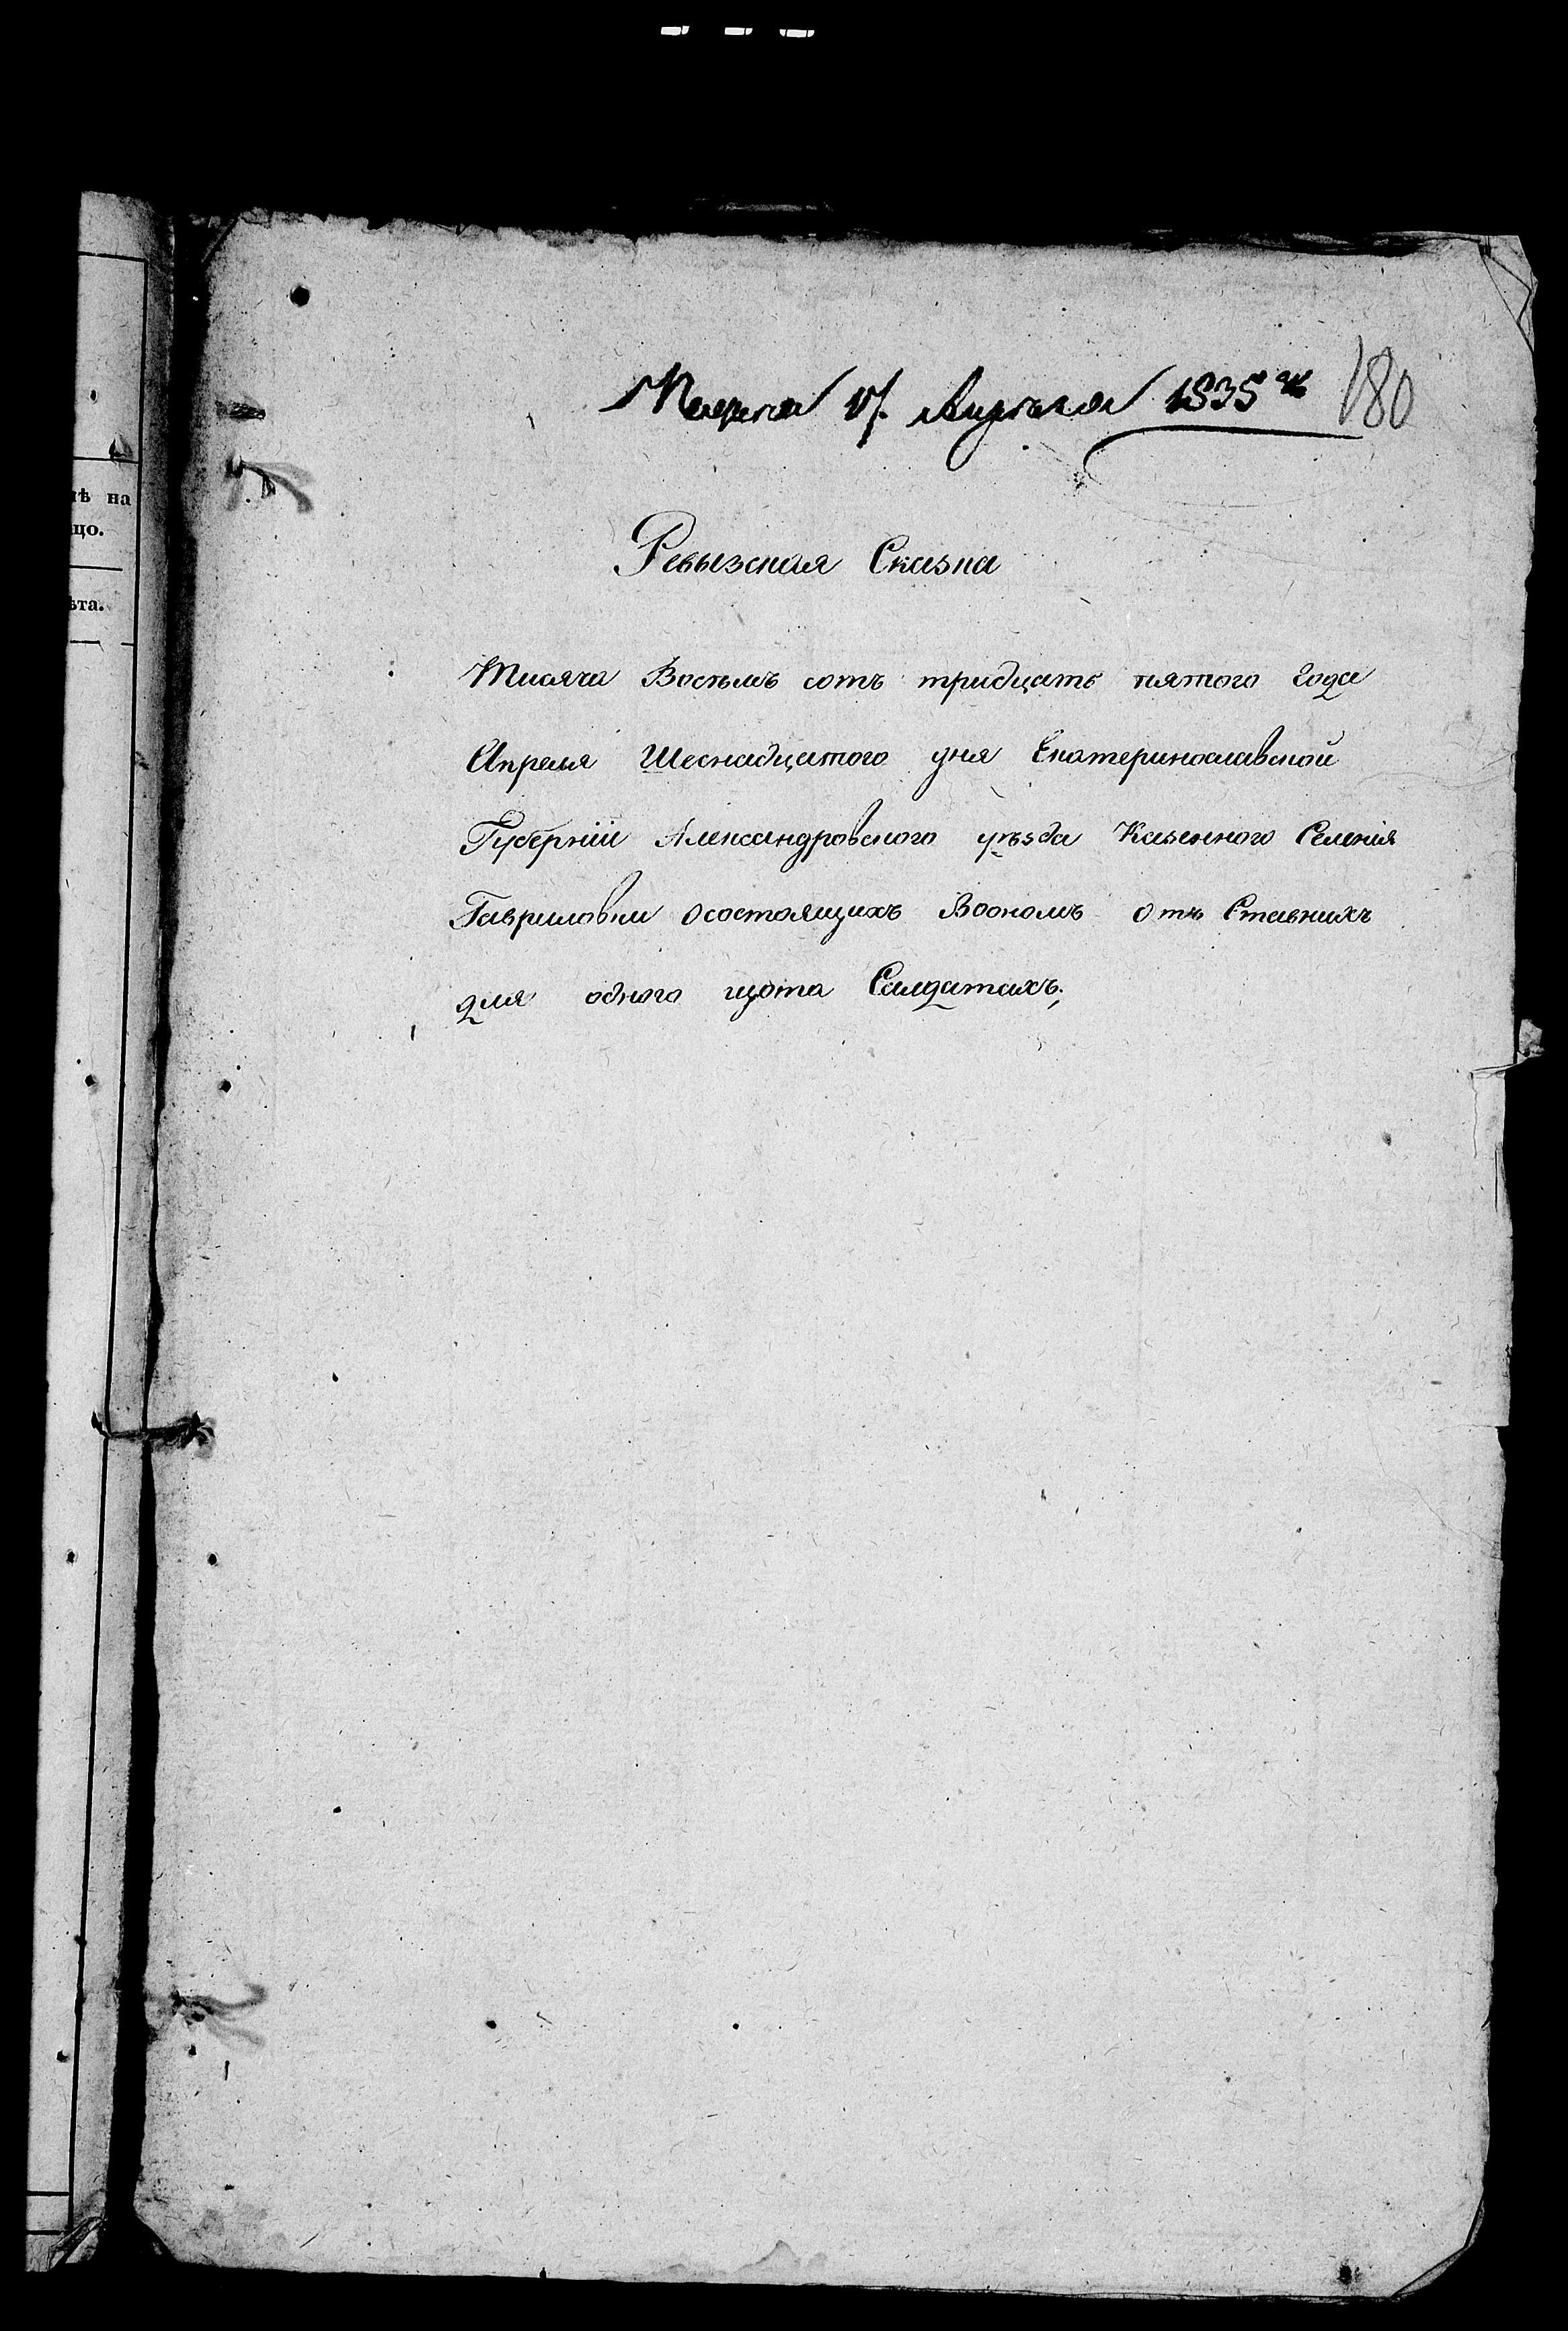 17 Апреля 1835 180
Ревызская Сказка
Тисяча Восемъ сотъ тридцать пятого года
Апреля Шеснадцатого дня Екатеринославской
Губерніи Александровского уѣзда Казенного Селенія
Гавриловки осостоящихъ Воономъ отъ Ставнихъ
для одного щота Салдатахъ;
на
цо.
ѣта.